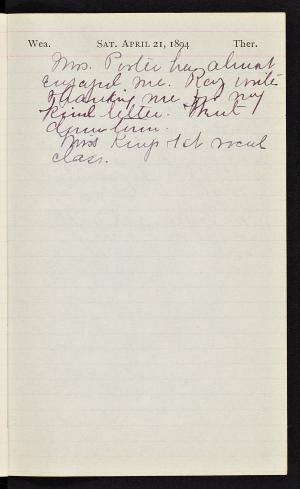 Wea. SAT. APRIL 21, 1894 Ther.
Mrs. Porter has almost
engaged me. Ray wrote
thanking me for my
kind letter. Went
down town.
Miss King's 1st vocal
class.